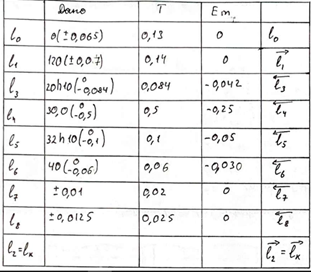 Dano T Em,
l₀ 0(±0,065) 0,13 0 l₀
l₁ 120(±0,07) 0,14 0 l₁
l₃ 20h10(0 -0,084) 0,084 -0,042 l₃
l₄ 30,0(0 -0,5) 0,5 -0,25 l₄
l₅ 32h10(0 -0,1) 0,1 -0,05 l₅
l₆ 40(0 -0,06) 0,06 -0,030 l₆
l₇ ±0,01 0,02 0 l₇
l₈ ±0,0125 0,025 0 l₈
l₂=lₖ l₂=lₖ